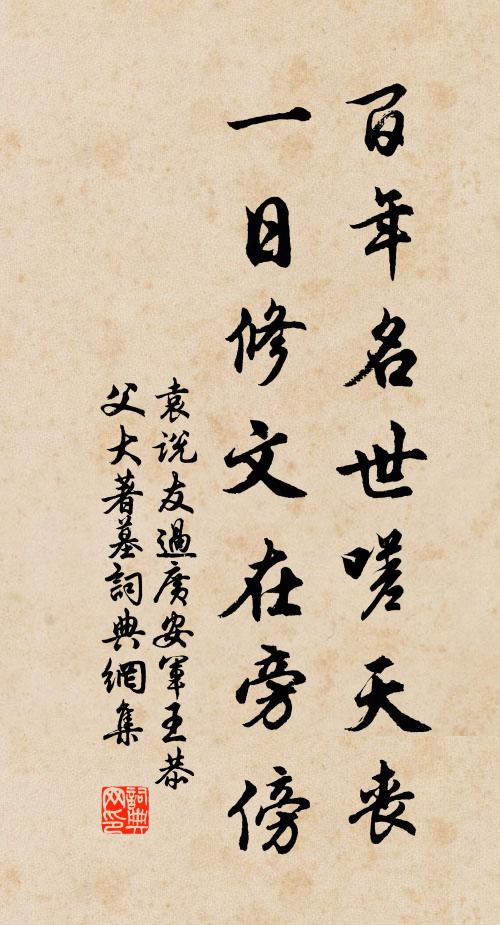 百年名世嗟天喪
一日修文在旁傍
袁說友過廣安軍王恭
父大著墓詞典網集
詞典網印